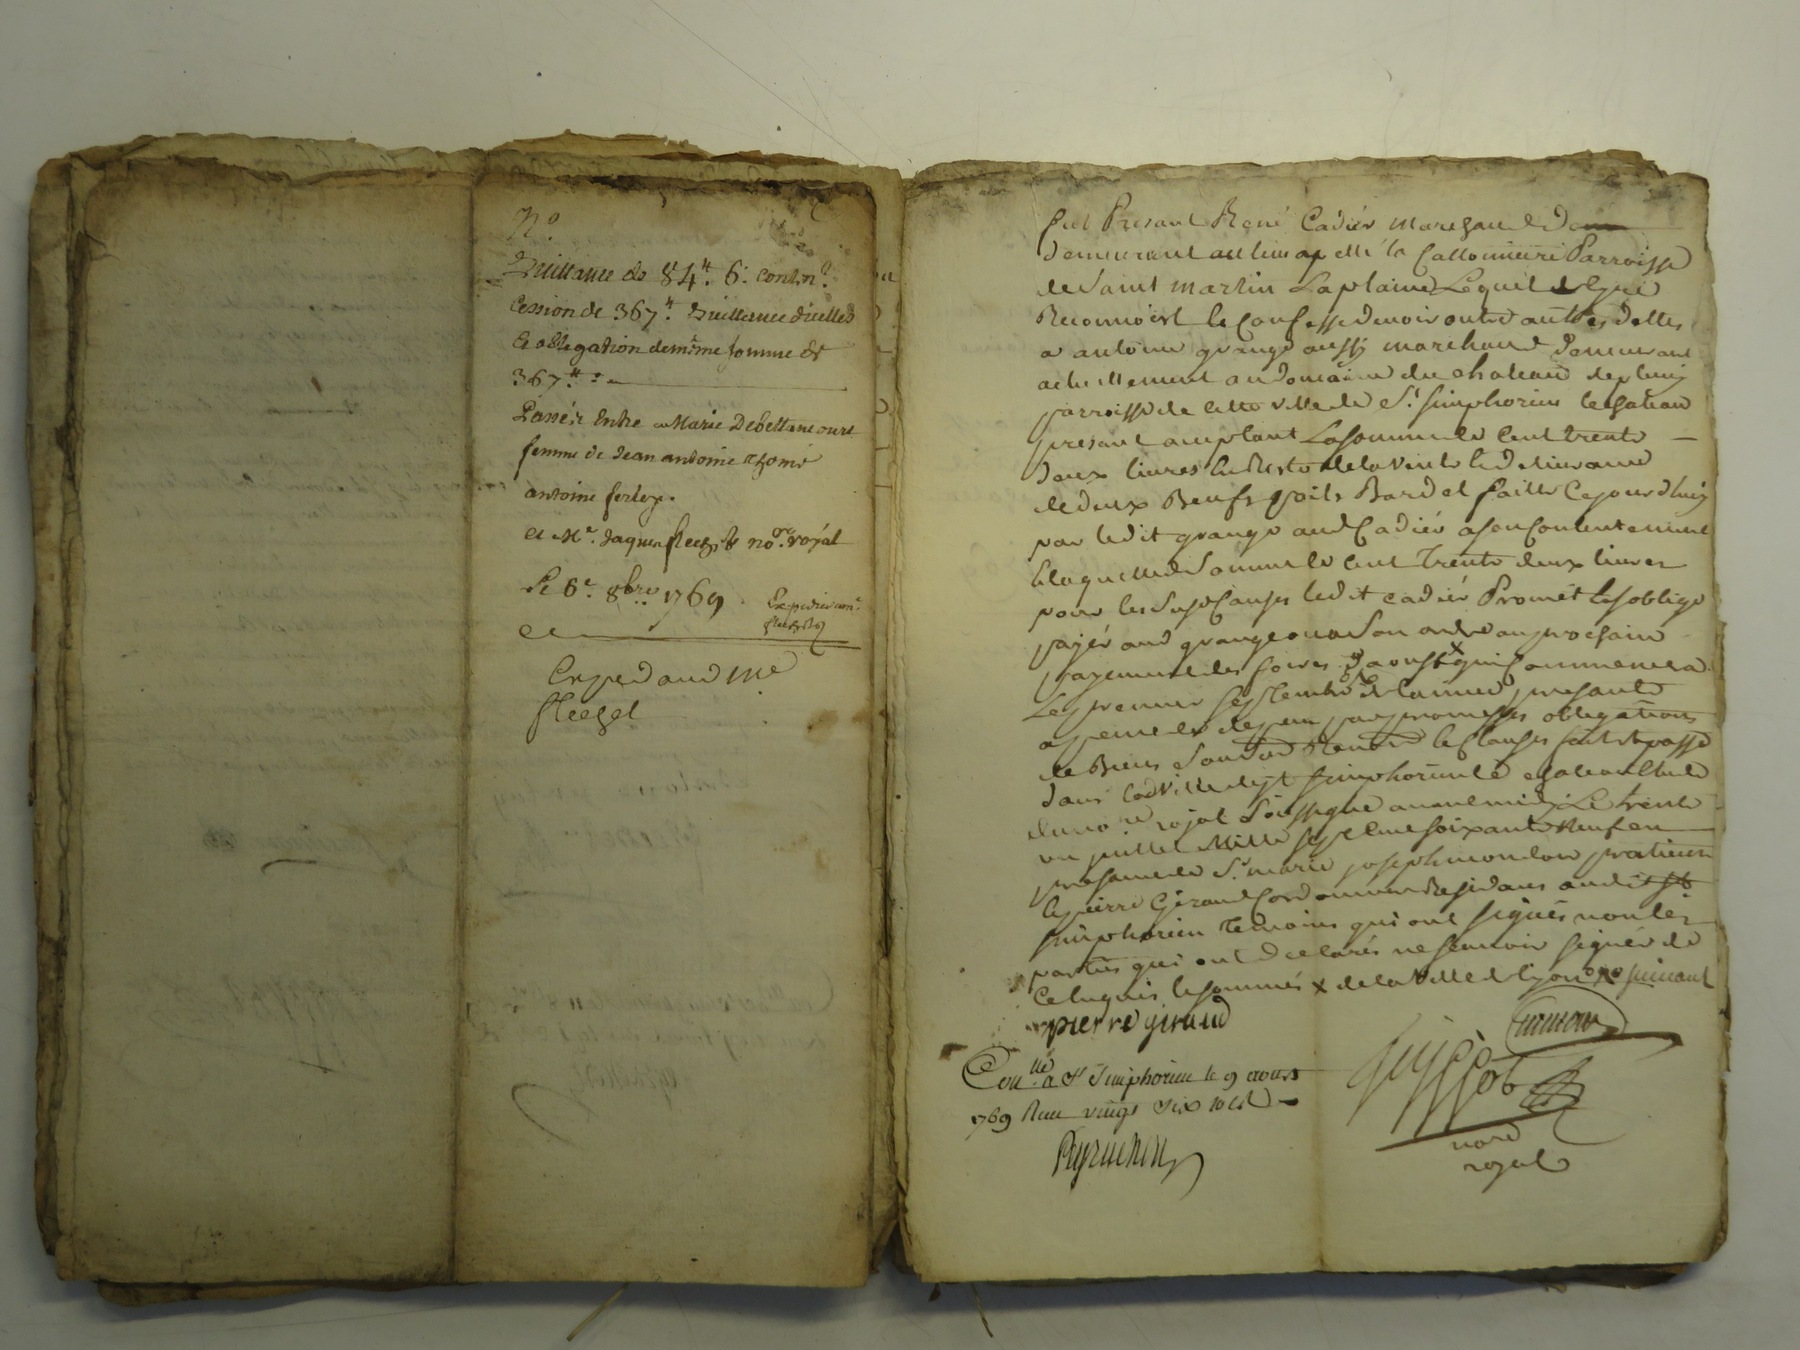 N°
Quittance de 84# 6s contn.t
Cession de 367# quittance dicelles
& obligation de même somme de
367#
Passée Entre Marie Debettancourt
femme de Jean antoine thomé
antoine
et Me. Jaques no.re royal
Le 6e. 8bre 1769
Expedié
Exped aud me
fut Presant René Cadier marchand
demeurant au lieu apellé la Parroisse
de Saint martin Laplaine Lequel de gré
Reconnoist & Confesse devoir outre autres dettes
a antoine grange aussy marchand demeurant
actuellement au domaine du chateau de
parroisse de cette ville de St. simphorien le chateau
presant acceptant La somme de Cent trente
deux livres du Reste de la vente & delivrance
de deux Beufs poils Bardel faitte Cejourdhuy
par ledit grange aud Cadier a son Contentement
Laquelle de Somme de Cent Trente deux livres
pour les Susd Causes ledit cadier Promet & s'oblige
payer aud grange ou a son ordre au prochain
payement des foires d'aoust x qui Commencera
Le premier septembre de lannée presante
a peine de depens par promesses obligations
de Biens Renond & Clauses fait & passé
dans lad ville de st simphorien le chateau Etude
du no.re royal Soussigné avant midy Le trente
un juillet Mille sept Cent soixante Neuf en
presance de Sr. marie joseph pratitien
& pierre Giraud Cordonnier Residans audit St
simphorien temoins qui ont signés non les
parties qui ont declarés ne scavoir signér de
Ce enquis & sommés x de la ville de lyon
pierre giraud
Con.llé a St Simphorien le 9 aoust
1769 Reçu vingt six sols
nore
royal